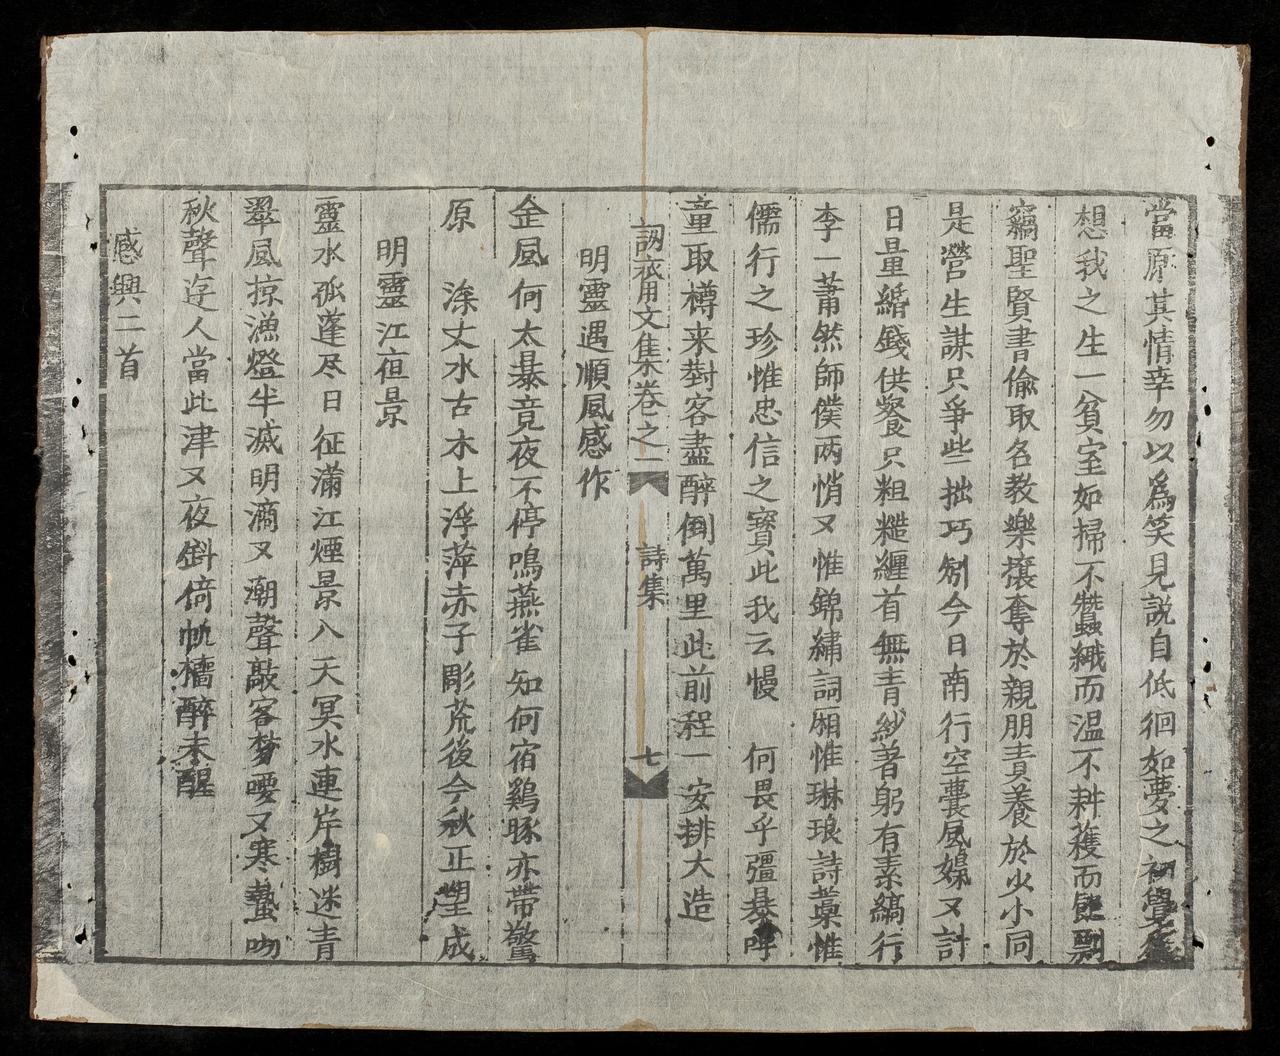 當原其情幸勿以爲笑見説自低徊如夢之初覺
想我之生一貧室如掃不蠶織而温不耕穫而飽剽
竊聖賢書偸取名教樂攘奪於親朋責養於少小同
是營生謀只爭些拙巧矧今日南行空囊風娘又計
日量緡錢供餐只粗糙纒首無青紗著躬有素縞行
李一蕭然師僕両悄又惟錦繡詞厢惟琳琅詩藁惟
儒行之珍惟忠信之寳此我云慢 何畏乎彊暴呼
童取樽来對客盡醉倒萬里此前程一安排大造
訒齋文集卷之一 詩集 七
明靈遇順風感作
金風何太暴竟夜不停鳴燕雀知何宿鷄豚亦帶驚
原 滌丈水古木上浮萍赤子彫荒後今秋正望成
明靈江夜景
靈水孤蓬尽日征滿江煙景八天冥水連岸樹迷青
翠風掠漁燈半滅明滴又潮聲敲客梦嘤又寒蛩吻
秋聲迃人當此津又夜斜倚帆檣醉未醒
感興二首